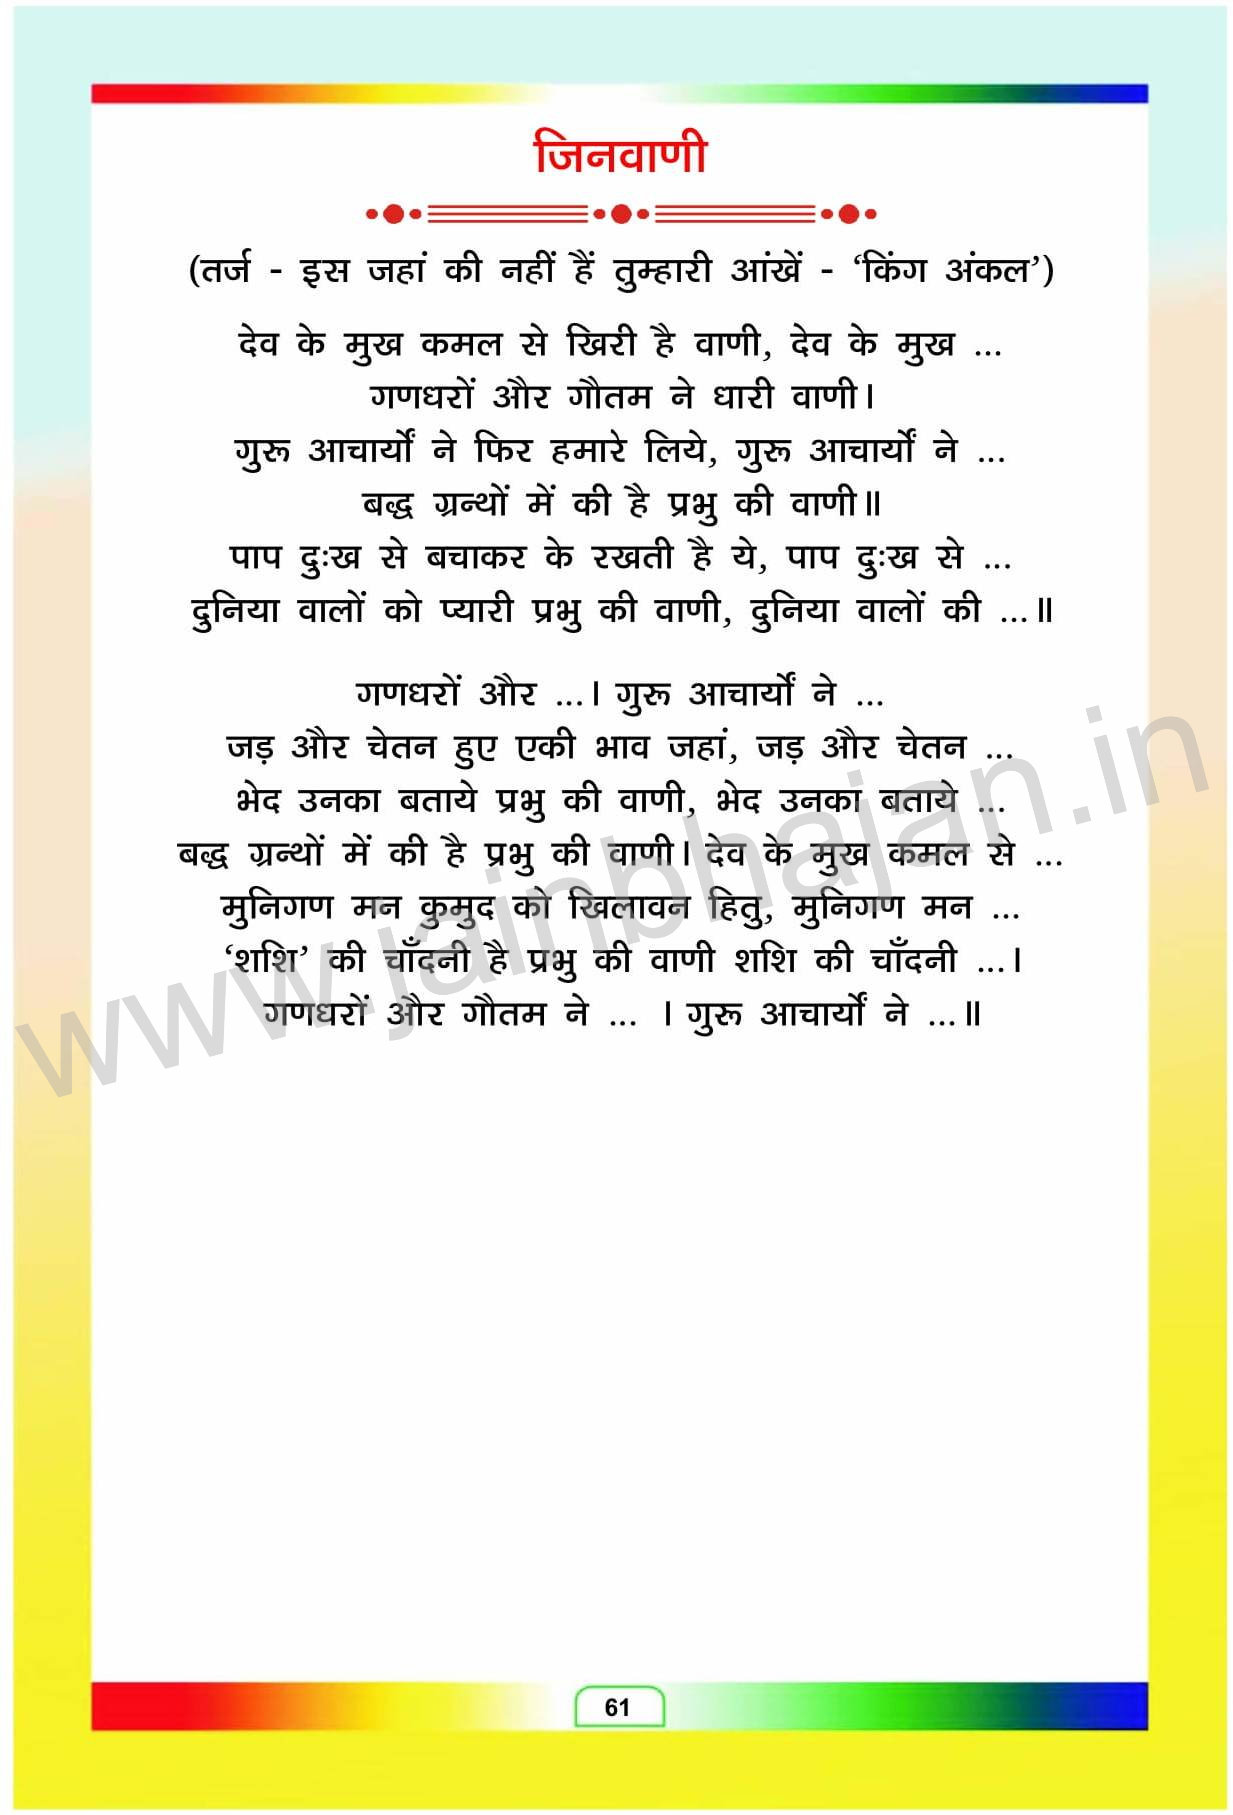 जिनवाणी
(तर्ज - इस जहां की नहीं हैं तुम्हारी आंखें - ‘किंग अंकल’)
देव के मुख कमल से खिरी है वाणी, देव के मुख ...
गणधरों और गौतम ने धारी वाणी।
गुरू आचार्यों ने फिर हमारे लिये, गुरू आचार्यों ने ...
बद्ध ग्रन्थों में की है प्रभु की वाणी॥
पाप दुःख से बचाकर के रखती है ये, पाप दुःख से ...
दुनिया वालों को प्यारी प्रभु की वाणी, दुनिया वालों की ...॥
गणधरों और ...। गुरू आचार्यों ने ...
जड़ और चेतन हुए एकी भाव जहां, जड़ और चेतन ...
भेद उनका बताये प्रभु की वाणी, भेद उनका बताये ...
बद्ध ग्रन्थों में की है प्रभु की वाणी। देव के मुख कमल से ...
मुनिगण मन कुमुद को खिलावन हितु, मुनिगण मन ...
‘शशि’ की चाँदनी है प्रभु की वाणी शशि की चाँदनी ...।
गणधरों और गौतम ने ... । गुरू आचार्यों ने ...॥
www.jainbhajan.in
61